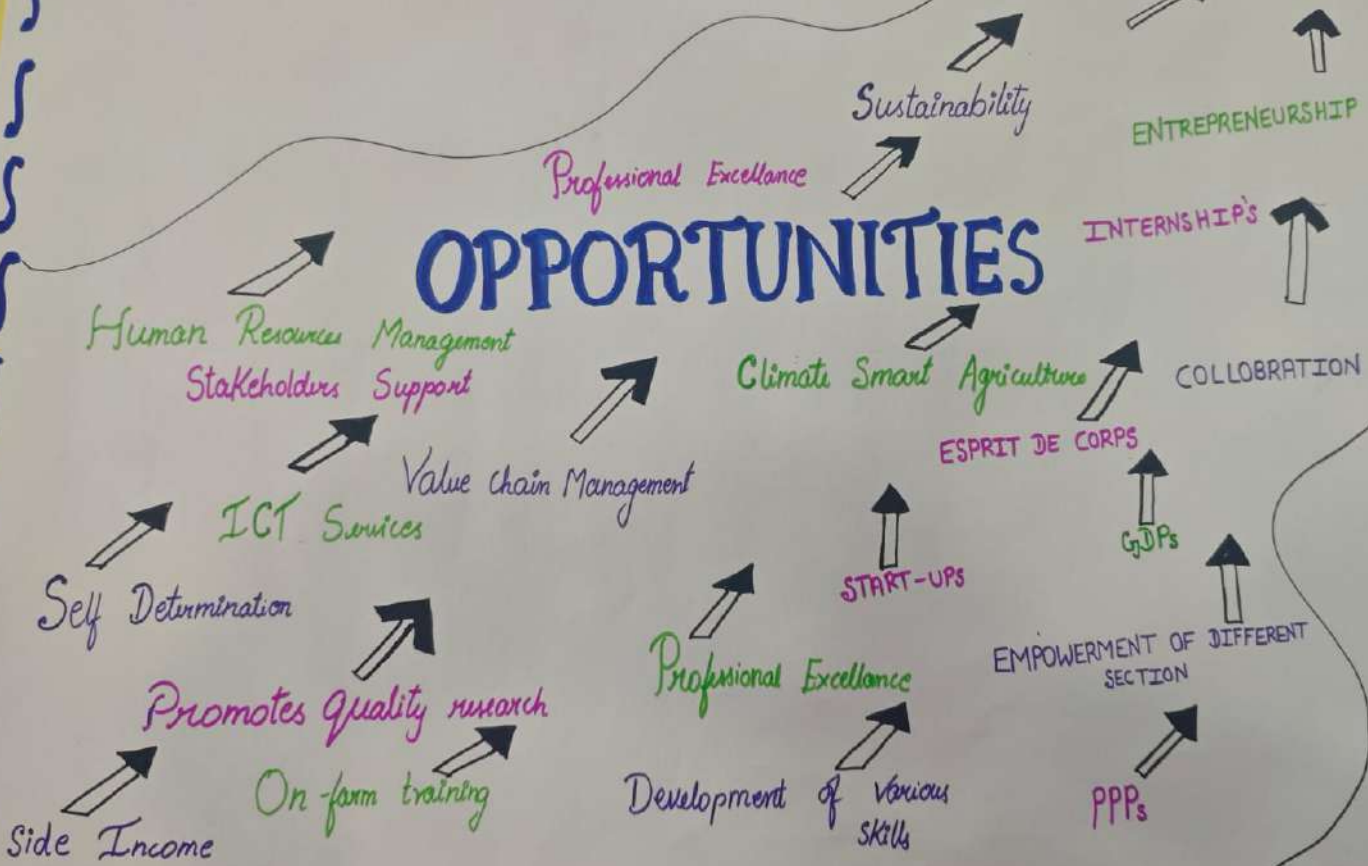 Sustainability
ENTREPRENEURSHIP
Professional Excellance
INTERNSHIP'S
OPPORTUNITIES
Human Resources Management
Stakeholders Support
Climate Smart Agriculture
COLLOBRATION
ESPRIT DE CORPS
Value Chain Management
ICT Services
GDPs
START-UPS
Self Determination
EMPOWERMENT OF DIFFERENT
SECTION
Professional Excellance
Promotes quality research
On-farm training
Development of Various
Skills
PPPs
Side Income